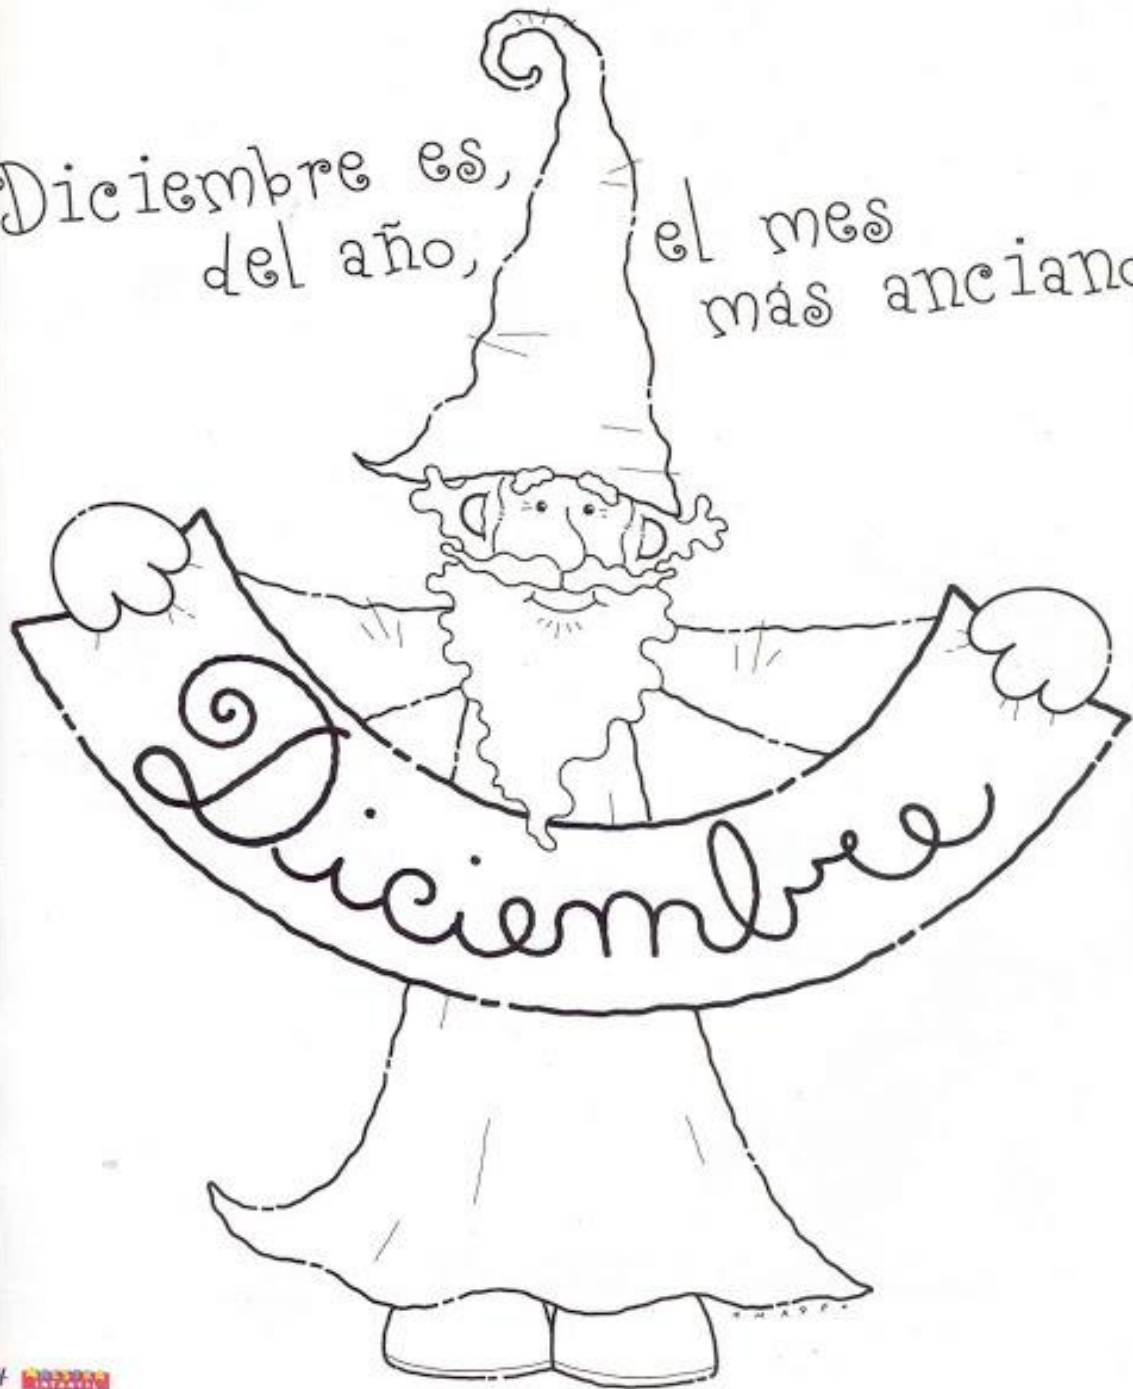 Diciembre es,
del año,
el mes
más anciano
Diciembre